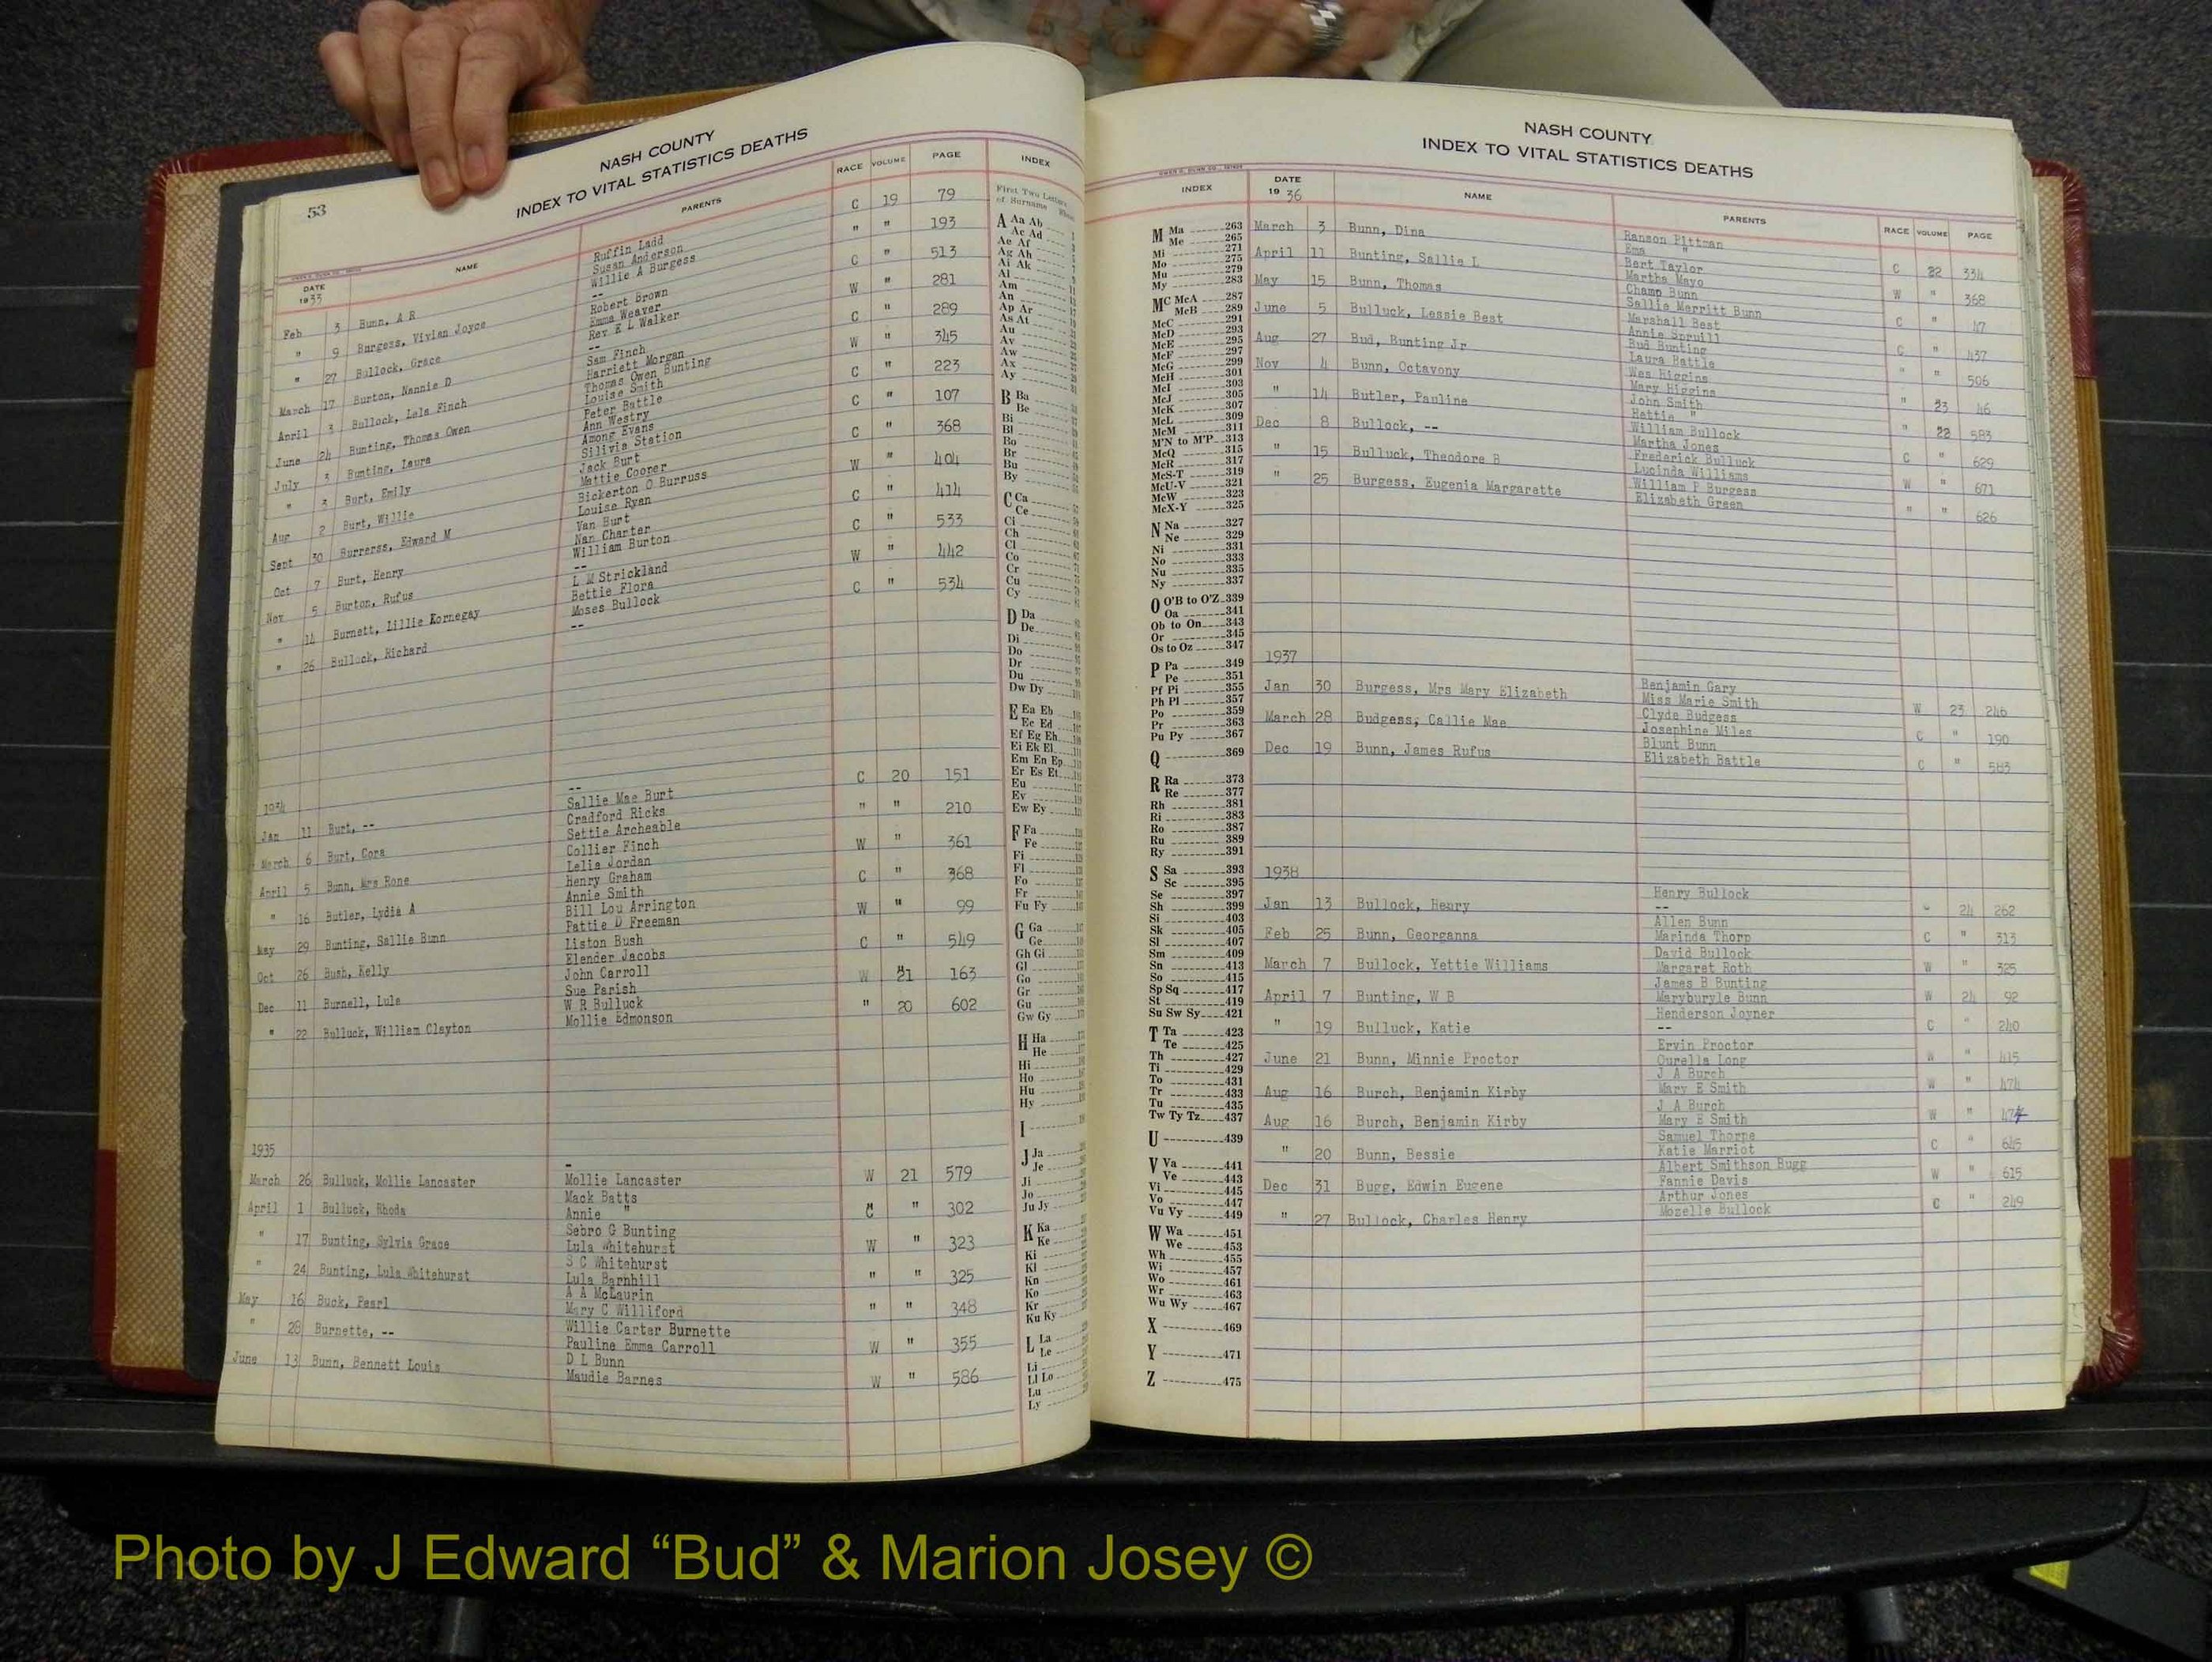 53
NASH COUNTY
INDEX TO VITAL STATISTICS DEATHS
DATE
1933
NAME
PARENTS
RACE VOLUME PAGE
Feb 3 Bunn, A R Ruffin Ladd C 19 79
Susan Anderson
" 9 Burgess, Vivian Joyce Willie A Burgess " " 193
--
" 27 Bullock, Grace Robert Brown C " 513
Emma Weaver
March 17 Burton, Nannie D Rev E L Walker W " 281
--
April 3 Bullock, Lela Finch Sam Finch C " 289
Harriett Morgan
June 24 Bunting, Thomas Owen Thomas Owen Bunting W " 345
Louise Smith
July 3 Bunting, Laura Peter Battle C " 223
Ann Westry
" Burt, Emily Among Evans C " 107
Silivia Station
Aug 2 Burt, Willie Jack Burt C " 368
Mattie Cooper
Sept 30 Burrerss, Edward M Bickerton O Burruss W " 404
Louise Ryan
Oct 7 Burt, Henry Van Burt C " 414
Nan Charter
Nov 5 Burton, Rufus William Burton C " 533
--
" 14 Burnett, Lillie Kornegay L M Strickland W " 442
Bettie Flora
" 26 Bullock, Richard Moses Bullock C " 534
--
1934
Jan 11 Burt, -- -- C 20 151
Sallie Mae Burt
March 6 Burt, Cora Cradford Ricks " " 210
Settie Archeable
April 5 Bunn, Mrs Rone Collier Finch W " 361
Lelia Jordan
" 16 Butler, Lydia A Henry Graham C " 368
Annie Smith
May 29 Bunting, Sallie Bunn Bill Lou Arrington W " 99
Pattie D Freeman
Oct 26 Bush, Kelly Liston Bush C " 549
Elender Jacobs
Dec 11 Burnell, Lula John Carroll W 21 163
Sue Parish
" 22 Bulluck, William Clayton W R Bulluck " 20 602
Mollie Edmonson
1935
March 26 Bulluck, Mollie Lancaster - W 21 579
Mollie Lancaster
April 1 Bulluck, Rhoda Mack Batts C " 302
Annie "
" 17 Bunting, Sylvia Grace Sebro G Bunting W " 323
Lula Whitehurst
" 24 Bunting, Lula Whitehurst S C Whitehurst " " 325
Lula Barnhill
May 16 Buck, Pearl A A McLaurin " " 348
Mary C Williford
" 28 Burnette, -- Willie Carter Burnette W " 355
Pauline Emma Carroll
June 13 Bunn, Bennett Louis D L Bunn W " 586
Maudie Barnes
INDEX
First Two Letters
of Surname
A Aa Ab
Ac Ad
Ae Af
Ag Ah
Ai Ak
Al
Am
An
Ap Ar
As At
Au
Av
Aw
Ax
Ay
B Ba
Be
Bi
Bl
Bo
Br
Bu
By
C Ca
Ce
Ci
Ch
Cl
Co
Cr
Cu
Cy
D Da
De
Di
Do
Dr
Du
Dw Dy
E Ea Eb
Ec Ed
Ef Eg Eh
Ei Ek El
Em En Ep
Er Es Et
Eu
Ev
Ew Ey
F Fa
Fe
Fi
Fl
Fo
Fr
Fu Fy
G Ga
Ge
Gh Gi
Gl
Go
Gr
Gu
Gw Gy
H Ha
He
Hi
Ho
Hu
Hy
I
J Ja
Je
Ji
Jo
Ju Jy
K Ka
Ke
Ki
Kl
Kn
Ko
Kr
Ku Ky
L La
Le
Li
Ll Lo
Lu
Ly
NASH COUNTY
INDEX TO VITAL STATISTICS DEATHS
INDEX
M Ma 263
Me 265
Mi 271
Mo 275
Mu 279
My 283
Mc McA 287
McB 289
McC 291
McD 293
McE 295
McF 297
McG 299
McH 301
McI 303
McJ 305
McK 307
McL 309
McM 311
M'N to M'P 313
McQ 315
McR 317
McS-T 319
McU-V 321
McW 323
McX-Y 325
N Na 327
Ne 329
Ni 331
No 333
Nu 335
Ny 337
O O'B to O'Z 339
Oa 341
Ob to On 343
Or 345
Os to Oz 347
P Pa 349
Pe 351
Pf Pi 355
Ph Pl 357
Po 359
Pr 363
Pu Py 367
Q 369
R Ra 373
Re 377
Rh 381
Ri 383
Ro 387
Ru 389
Ry 391
S Sa 393
Sc 395
Se 397
Sh 399
Si 403
Sk 405
Sl 407
Sm 409
Sn 413
So 415
Sp Sq 417
St 419
Su Sw Sy 421
T Ta 423
Te 425
Th 427
Ti 429
To 431
Tr 433
Tu 435
Tw Ty Tz 437
U 439
V Va 441
Ve 443
Vi 445
Vo 447
Vu Vy 449
W Wa 451
We 453
Wh 455
Wi 457
Wo 461
Wr 463
Wu Wy 467
X 469
Y 471
Z 475
DATE
1936
NAME
PARENTS
RACE VOLUME PAGE
March 3 Bunn, Dina Ranson Pittman C 22 334
Ema "
April 11 Bunting, Sallie L Bert Taylor W " 368
Martha Mayo
May 15 Bunn, Thomas Champ Bunn C " 47
Sallie Merritt Bunn
June 5 Bulluck, Lessie Best Marshall Best C " 437
Annie Spruill
Aug 27 Bud, Bunting Jr Bud Bunting " " 506
Laura Battle
Nov 4 Bunn, Octavony Wes Higgins " 23 46
Mary Higgins
" 14 Butler, Pauline John Smith " 22 583
Hattie "
Dec 8 Bullock, -- William Bullock C " 629
Martha Jones
" 15 Bulluck, Theodore B Frederick Bulluck W " 671
Lucinda Williams
" 25 Burgess, Eugenia Margarette William P Burgess " " 626
Elizabeth Green
1937
Jan 30 Burgess, Mrs Mary Elizabeth Benjamin Gary W 23 246
Miss Marie Smith
March 28 Budgess, Callie Mae Clyde Budgess C " 190
Josephine Miles
Dec 19 Bunn, James Rufus Blunt Bunn C " 583
Elizabeth Battle
1938
Jan 13 Bullock, Henry Henry Bullock " 24 262
--
Feb 25 Bunn, Georganna Allen Bunn C " 313
Marinda Thorp
March 7 Bullock, Yettie Williams David Bullock W " 325
Margaret Roth
April 7 Bunting, W B James B Bunting W 24 92
Maryburyle Bunn
" 19 Bulluck, Katie Henderson Joyner C " 240
--
June 21 Bunn, Minnie Proctor Ervin Proctor W " 415
Ourella Long
Aug 16 Burch, Benjamin Kirby J A Burch W " 474
Mary E Smith
Aug 16 Burch, Benjamin Kirby J A Burch W " 474
Mary E Smith
" 20 Bunn, Bessie Samuel Thorpe C " 645
Katie Marriot
Dec 31 Bugg, Edwin Eugene Albert Smithson Bugg W " 615
Fannie Davis
" 27 Bullock, Charles Henry Arthur Jones C " 249
Mozelle Bullock
Photo by J Edward “Bud” & Marion Josey ©